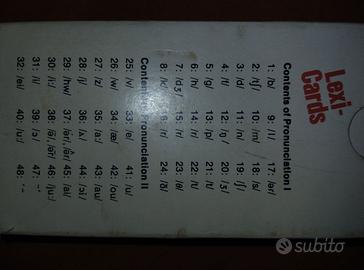 Lexi-
Cards
Contents of Pronunciation I
1: /b/ 9: /l/ 17: /ər/
2: /tʃ/ 10: /m/ 18: /s/
3: /d/ 11: /n/ 19: /ʃ/
4: /f/ 12: /ŋ/ 20: /ʒ/
5: /g/ 13: /p/ 21: /t/
6: /h/ 14: /r/ 22: /t/
7: /dʒ/ 15: /r/ 23: /θ/
8: /k/ 16: /r/ 24: /ð/
Contents of Pronunciation II
25: /v/ 33: /e/ 41: /u/
26: /w/ 34: /æ/ 42: /ou/
27: /z/ 35: /a:/ 43: /au/
28: /j/ 36: /ʌ/ 44: /ɔi/
29: /hw/ 37: 45: /ai/
30: /i:/ 38: 46: /ju:/
31: /i/ 39: /ɔ/ 47:
32: /ei/ 40: /u:/ 48:
subito